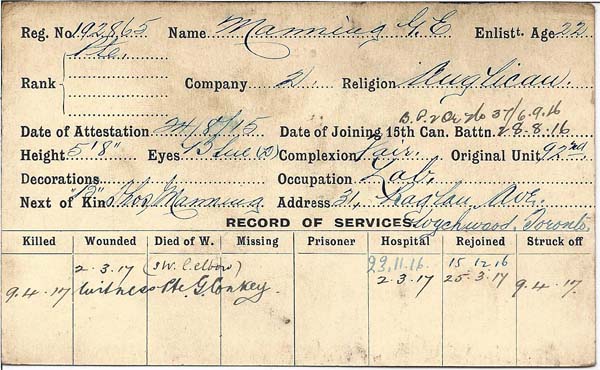 Reg. No. 192865 Name Manning G.E Enlistt. Age 22
Rank Pte. Company 2. Religion Anglican.
B.P.2 O/c 26 37/6.9.16
Date of Attestation 24/8/15 Date of Joining 15th Can. Battn. 28-8-16
Height 5'8" Eyes Blue (2) Complexion Fair. Original Unit 92nd
Decorations Occupation Lab.
Next of Kin "B" Thos Manning Address 31, Raglan Ave.
RECORD OF SERVICES Wychwood, Toronto.
Killed Wounded Died of W. Missing Prisoner Hospital Rejoined Struck off
23.11.16. 15 12 16
2.3.17 (SW. l. elbow) 2.3.17 25.3.17
9.4.17 Witness Pte G. Conkey. 9.4.17.